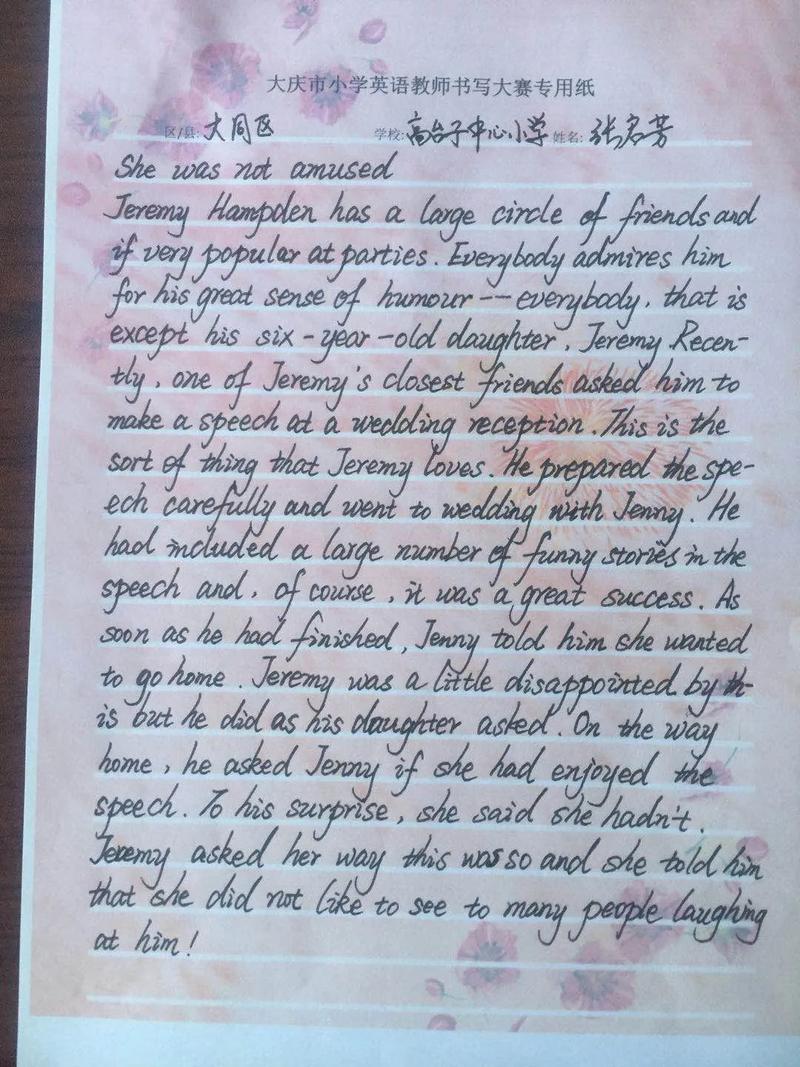 大庆市小学英语教师书写大赛专用纸
区/县: 大同区 学校: 高台子中心小学 姓名: 张名芳
She was not amused
Jeremy Hampden has a large circle of friends and
if very popular at parties. Everybody admires him
for his great sense of humour——everybody, that is
except his six-year-old daughter, Jeremy Recen-
tly, one of Jeremy's closest friends asked him to
make a speech at a wedding reception. This is the
sort of thing that Jeremy loves. He prepared the spe-
ech carefully and went to wedding with Jenny. He
had included a large number of funny stories in the
speech and, of course, it was a great success. As
soon as he had finished, Jenny told him she wanted
to go home. Jeremy was a little disappointed by th-
is but he did as his daughter asked. On the way
home, he asked Jenny if she had enjoyed the
speech. To his surprise, she said she hadn't.
Jeremy asked her way this was so and she told him
that she did not like to see to many people laughing
at him!